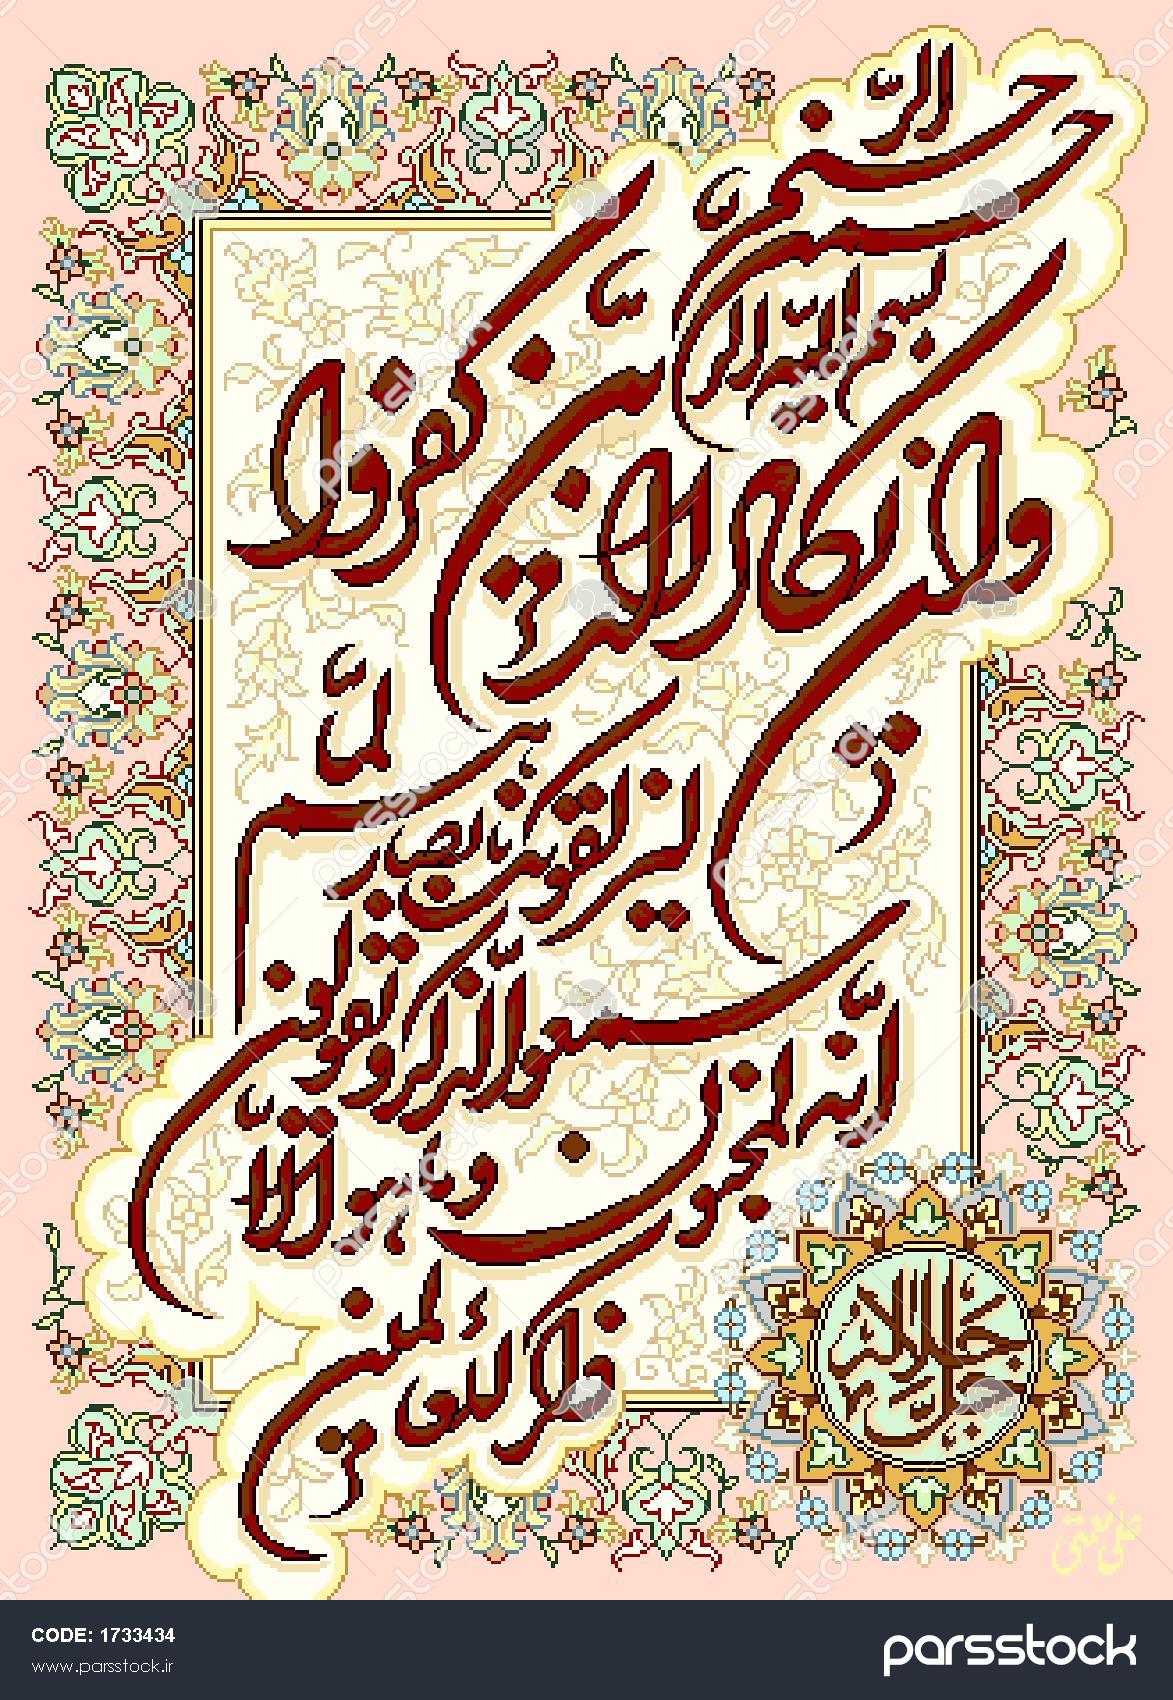 بسم الله الرحمن الرحیم
وان یکاد الذین کفروا
لیزلقونک بابصارهم لما
سمعوا الذکر و یقولون
انه لمجنون وما هو الا
ذکر للعالمین
جل جلاله
parsstock
CODE: 1733434
www.parsstock.ir
parsstock